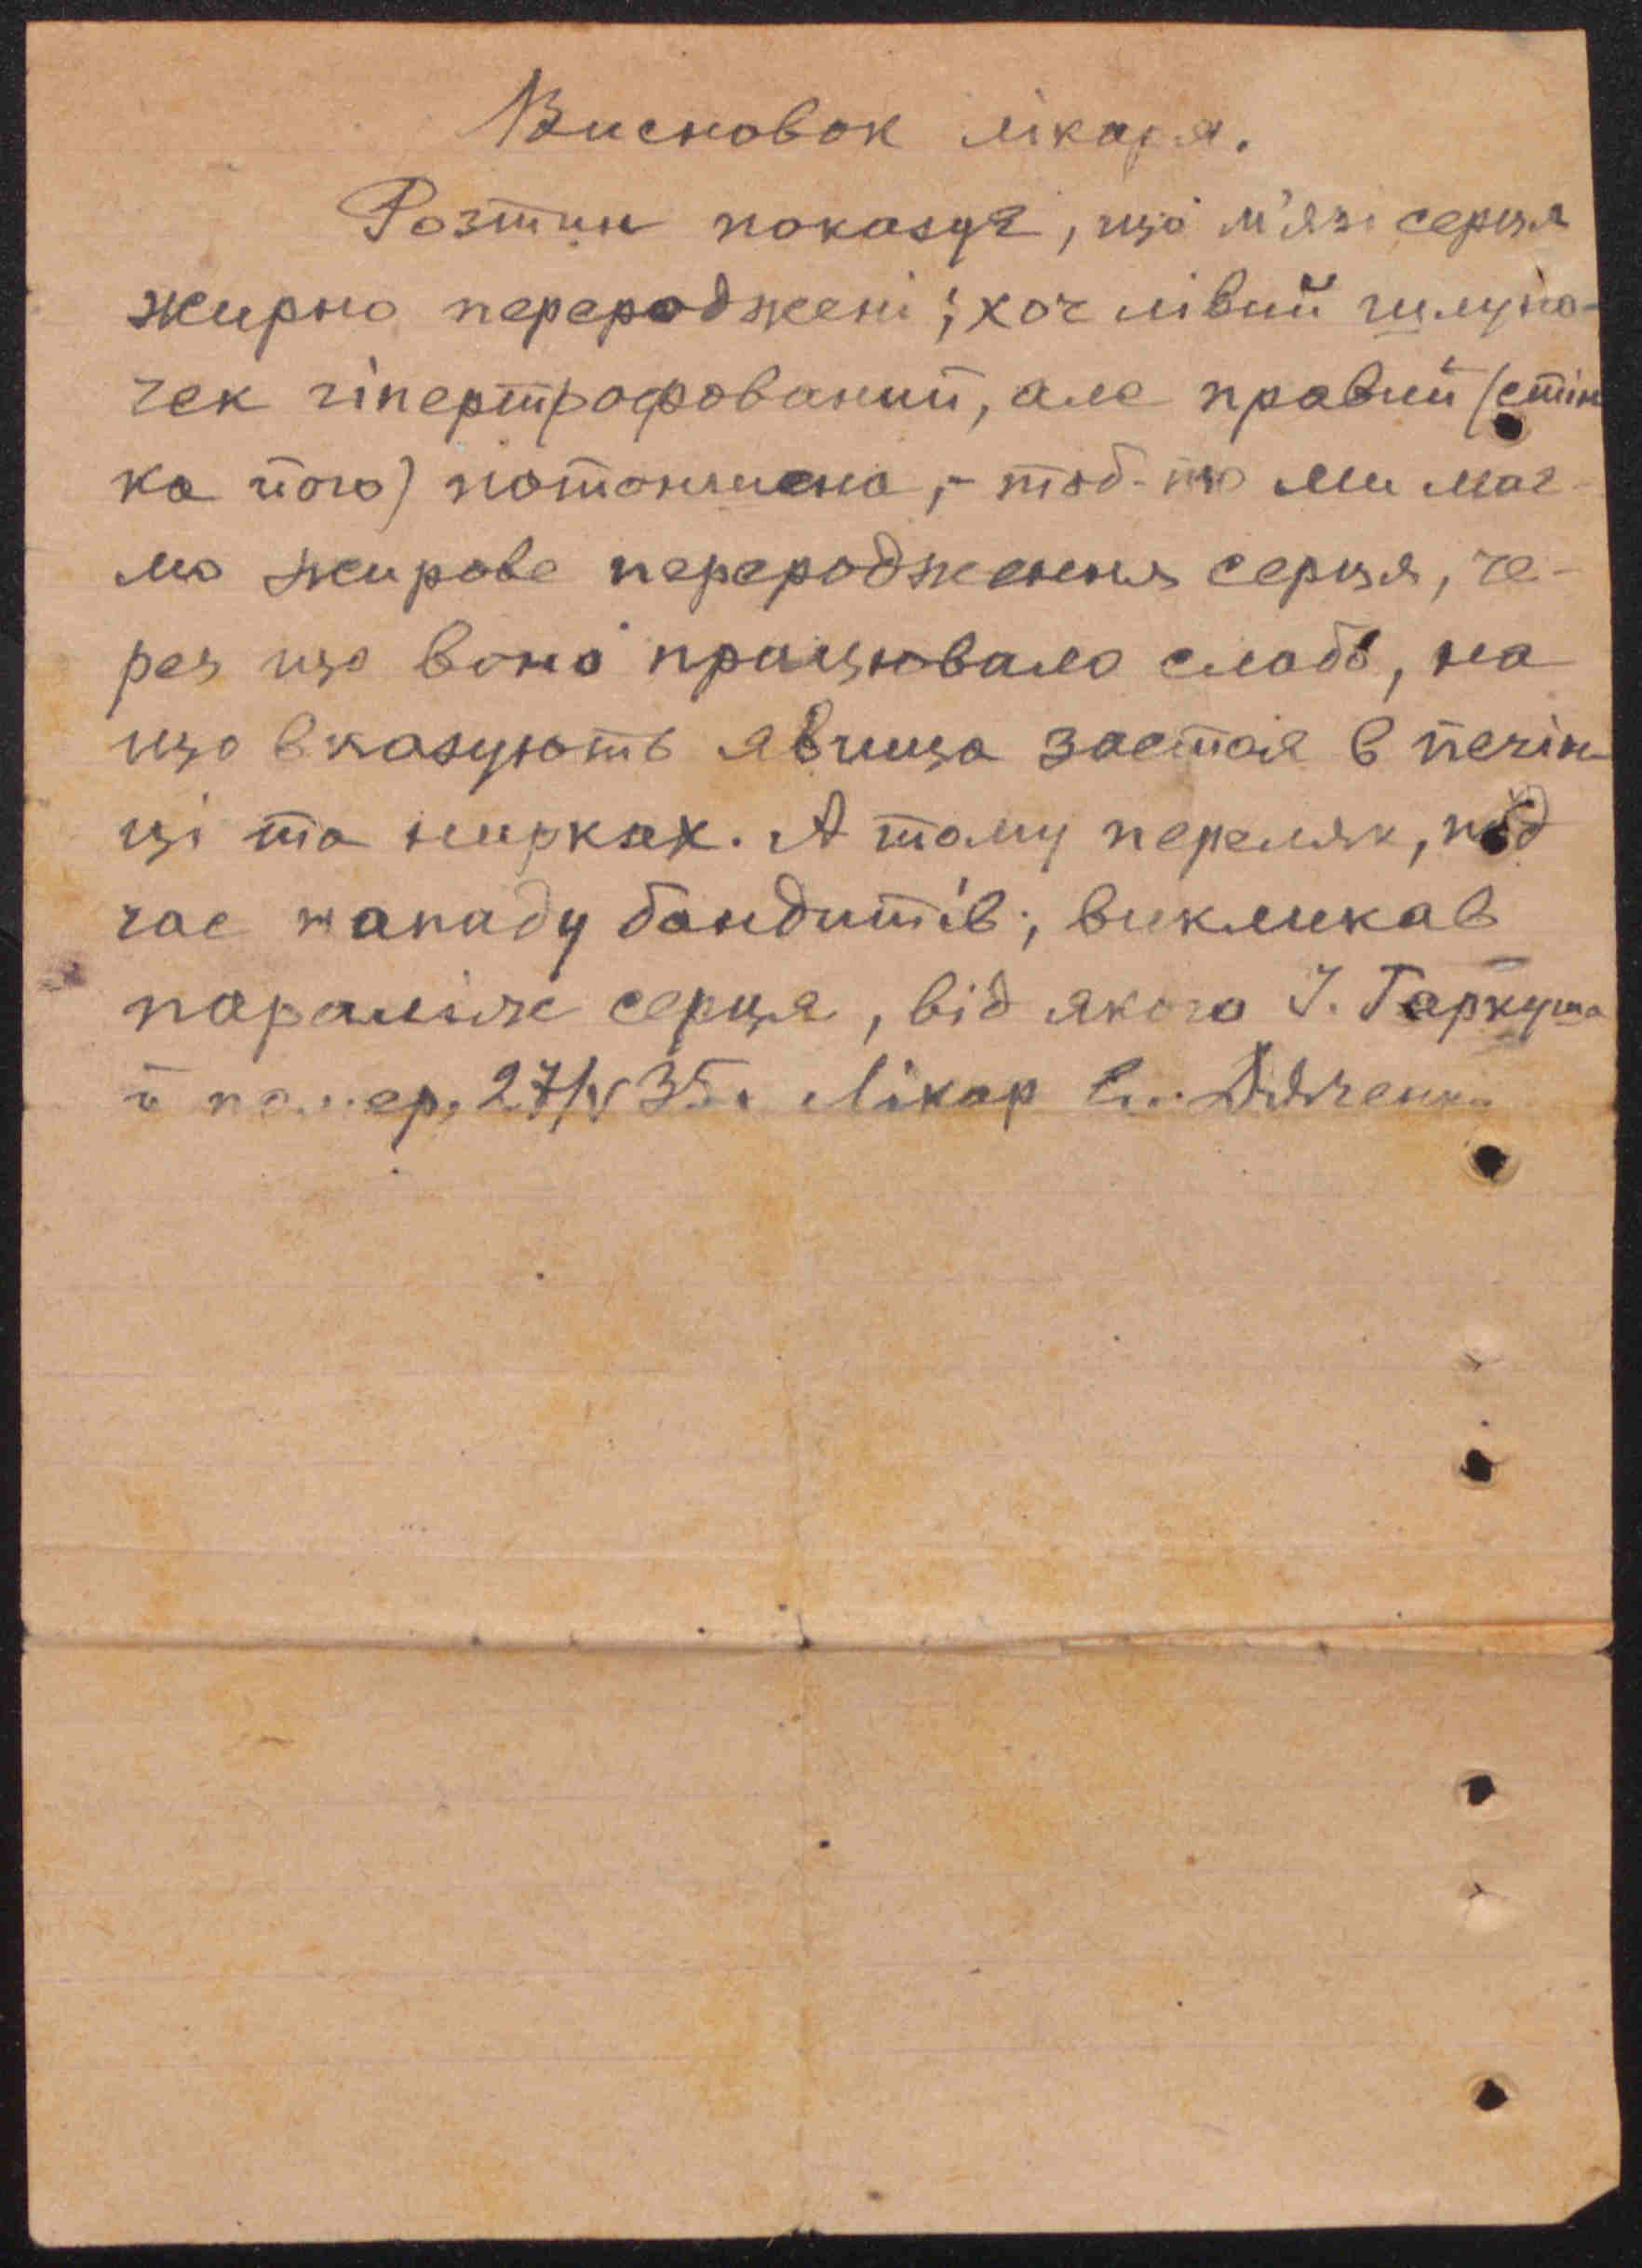 Висновок лікаря.
Розтин показує, що м'язи серця
жирно перероджені; хоч лівий шлуно-
чек гіпертрофований, але правий (стін
ка його) потоншена, - тоб-то ми має-
мо жирове переродження серця, че-
рез що воно працювало слабо, на
що вказують явища застоя в печін
ці та нирках. А тому переляк, під
час нападу бандитів, викликав
параліж серця, від якого І. Гаркуша
й помер. 27/V 35. Лікар